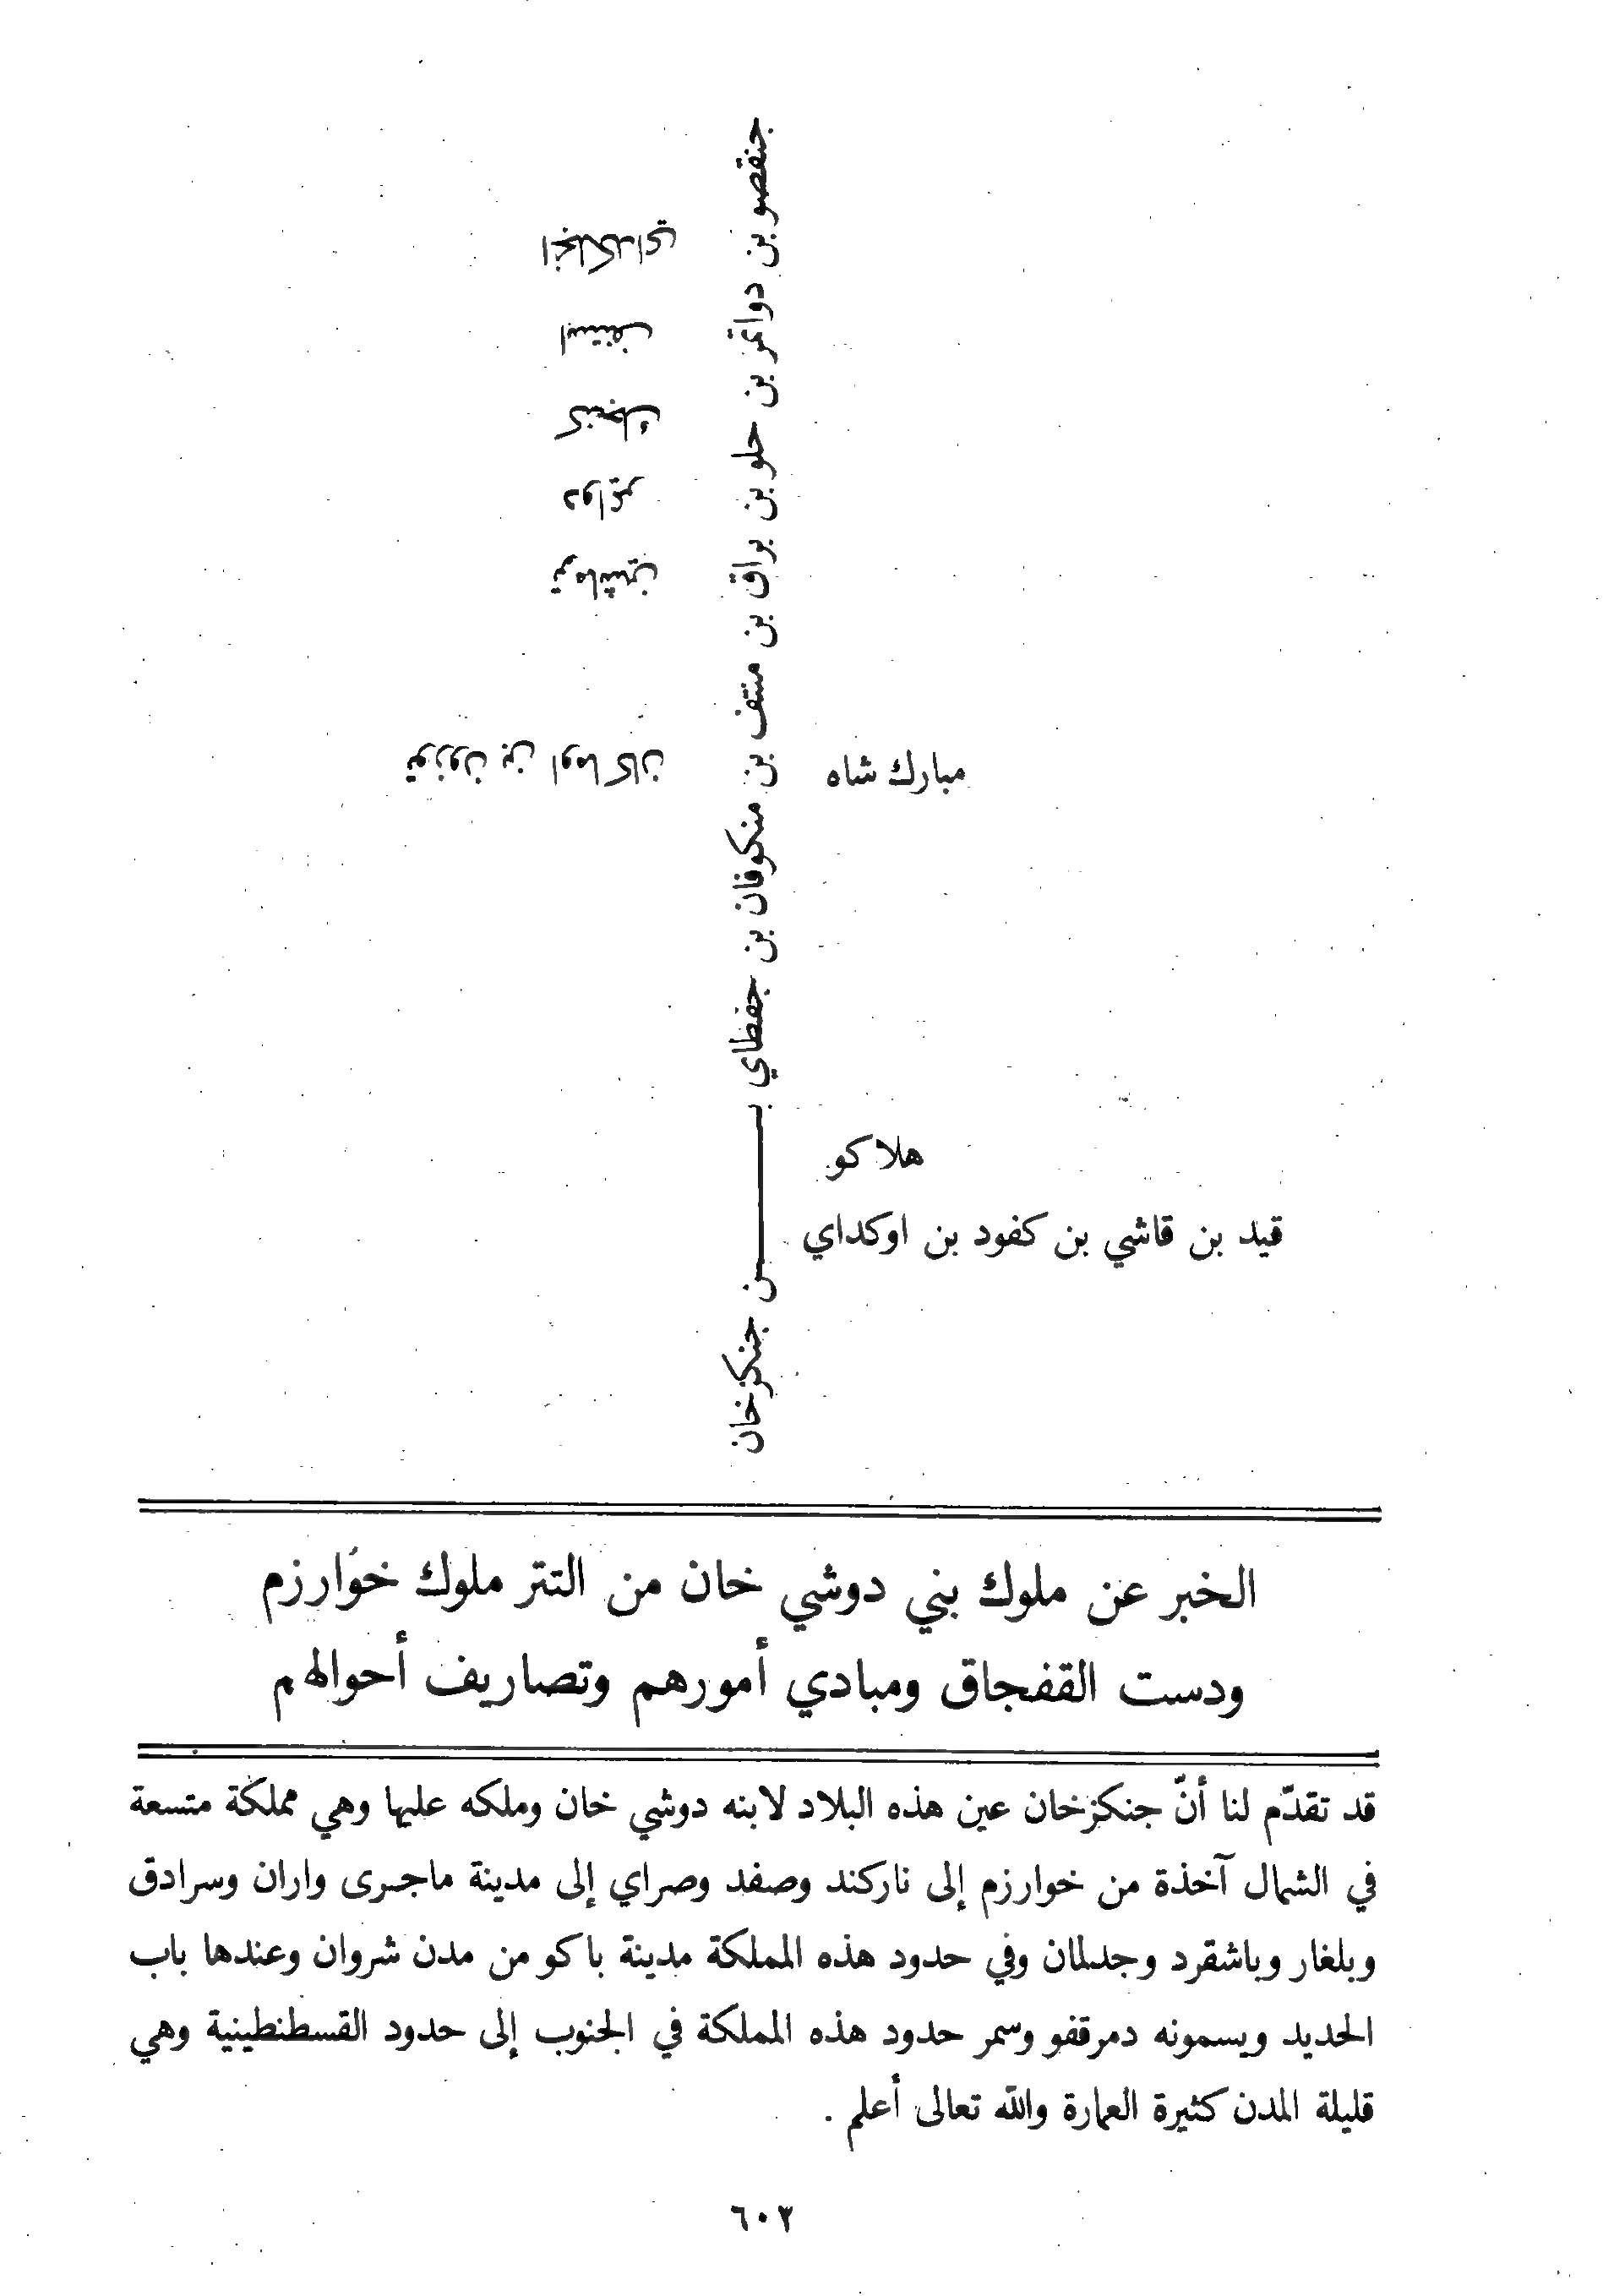 جنقصو بن دواتمر بن حلو بن براق بن منتف بن منكوفان بن جفطاي بن جنكزخان
انجلكداي
استنف
كنجك
دواتمر
ترماشين
توزون بن اوماكان
مبارك شاه
هلاكو
قيد بن قاشي بن كفود بن اوكداي
الخبر عن ملوك بني دوشي خان من التتر ملوك خوارزم
ودست القفجاق ومبادي أمورهم وتصاريف أحوالهم
قد تقدّم لنا أنّ جنكزخان عين هذه البلاد لابنه دوشي خان وملكه عليها وهي مملكة متسعة
في الشمال آخذة من خوارزم إلى ناركند وصفد وصراي إلى مدينة ماجرى واران وسرادق
وبلغار وباشقرد وجدلمان وفي حدود هذه المملكة مدينة باكو من مدن شروان وعندها باب
الحديد ويسمونه دمرقفو وسمر حدود هذه المملكة في الجنوب إلى حدود القسطنطينية وهي
قليلة المدن كثيرة العمارة والله تعالى أعلم .
٦٠٣